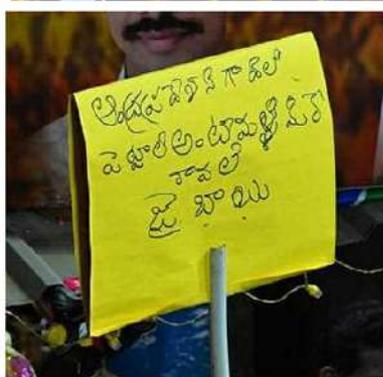 ఆంధ్రప్రదేశ్ ని గాడిలో
పెట్టాలి అంటే మళ్లీ మీరే
రావాలి
జై బాబు